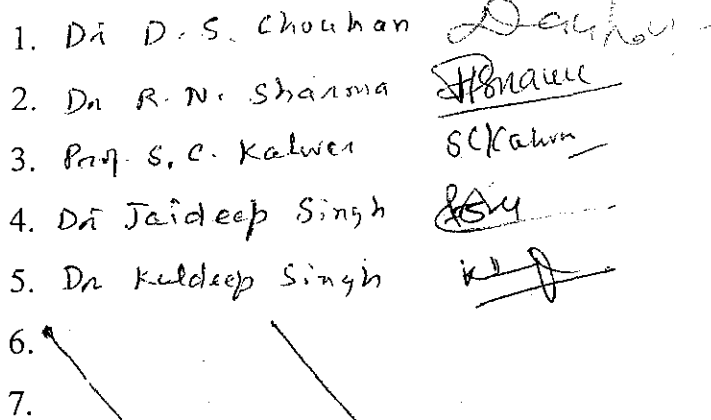 1. Dr D. S. Chouhan
2. Dr R. N. Sharma
3. Prof. S. C. Kalwar SCKalwar
4. Dr Jaideep Singh
5. Dr Kuldeep Singh
6.
7.